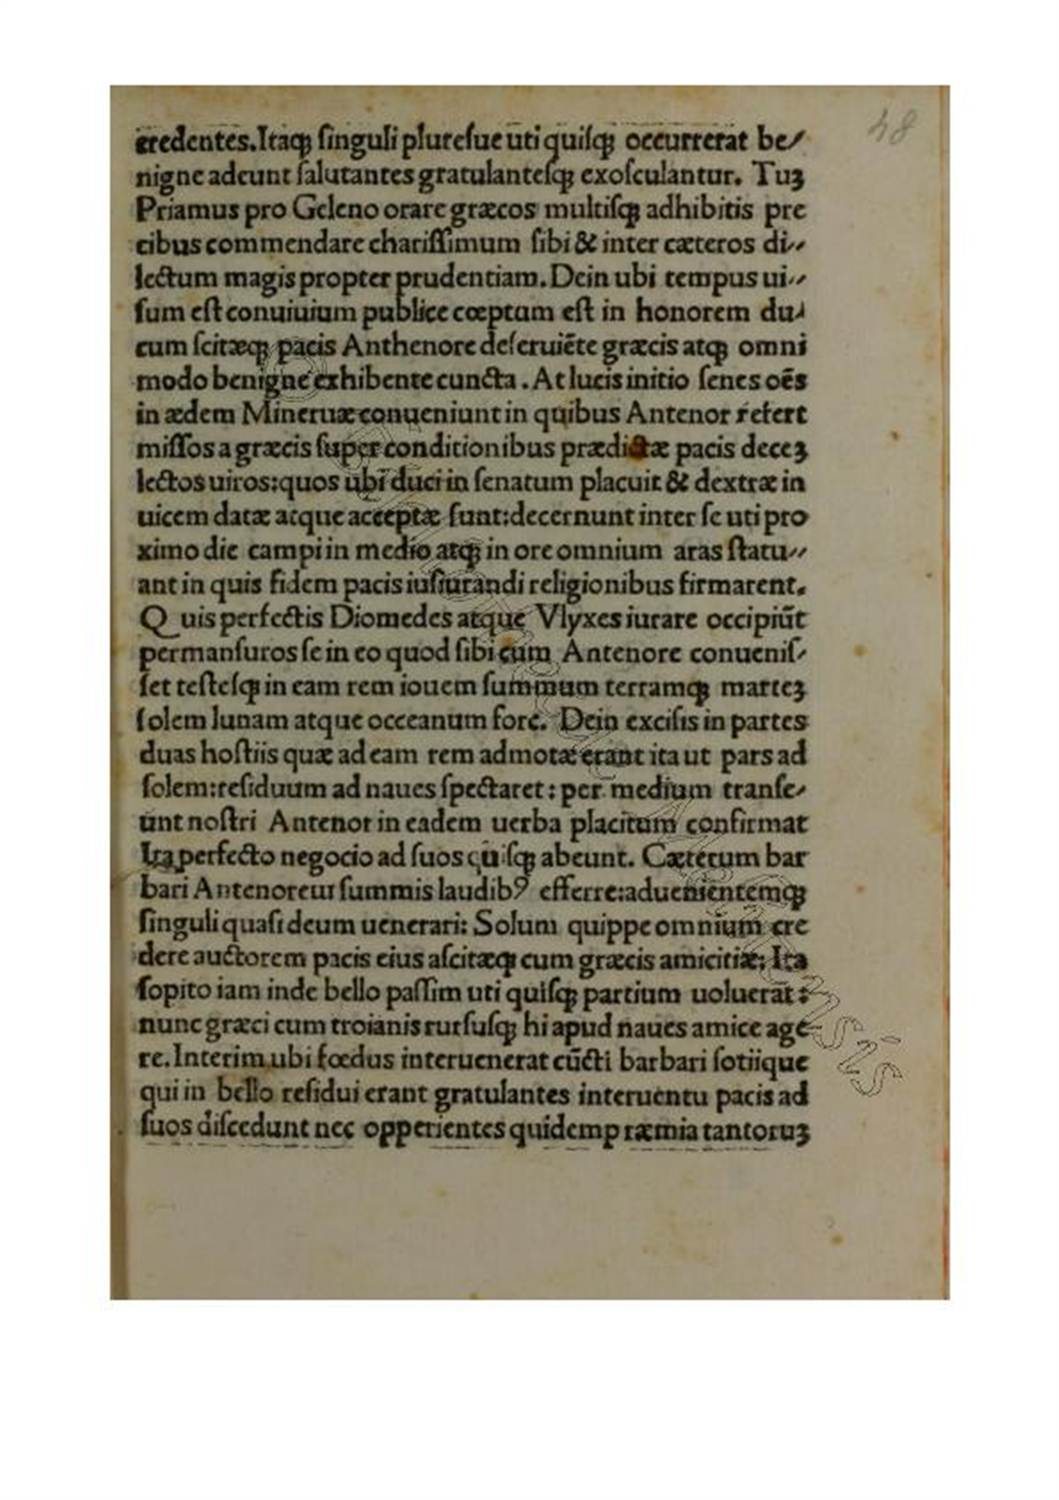 48
credentes.Itaqꝫ ſinguli pluresue uti quiſqꝫ occurrerat be⸗
nigne adeunt ſalutantes gratulanteſqꝫ exoſculantur. Tuꝫ
Priamus pro Geleno orare græcos multiſqꝫ adhibitis pre
cibus commendare chariſſimum ſibi & inter cæteros di⸗
lectum magis propter prudentiam. Dein ubi tempus ui⸗
ſum eſt conuiuium publice cœptum eſt in honorem du⸗
cum ſcitæqꝫ pacis Anthenore deſeruiēte græcis atqꝫ omni
modo benigne exhibente cuncta. At lucis initio ſenes oēs
in ædem Mineruæ conueniunt in quibus Antenor refert
miſſos a græcis ſuper conditionibus prædictæ pacis deceꝫ
lectos uiros: quos ubi duci in ſenatum placuit & dextræ in
uicem datæ atque acceptæ ſunt: decernunt inter ſe uti pro
ximo die campi in medio atqꝫ in ore omnium aras ſtatu⸗
ant in quis fidem pacis iuſiurandi religionibus firmarent.
Quis perfectis Diomedes atque Vlyxes iurare occipiūt
permanſuros ſe in eo quod ſibi cum Antenore conueniſ⸗
ſet teſteſqꝫ in eam rem iouem ſummum terramqꝫ marteꝫ
ſolem lunam atque occeanum fore. Dein exciſis in partes
duas hoſtiis quæ ad eam rem admotæ erant ita ut pars ad
ſolem: reſiduum ad naues ſpectaret: per medium tranſe⸗
unt noſtri Antenor in eadem uerba placitum confirmat
Ita perfecto negocio ad ſuos quiſqꝫ abeunt. Cæterum bar
bari Antenorem ſummis laudibꝰ efferre: aduenientemqꝫ
ſinguli quaſi deum uenerari: Solum quippe omnium cre
dere auctorem pacis eius aſcitæqꝫ cum græcis amicitiæ: Ita
ſopito iam inde bello paſſim uti quiſqꝫ partium uoluerāt:
nunc græci cum troianis rurſuſqꝫ hi apud naues amice age
re. Interim ubi fœdus interuenerat cūcti barbari ſotiique
qui in bello reſidui erant gratulantes interuentu pacis ad
ſuos diſcedunt nec opperientes quidem præmia tantoruꝫ